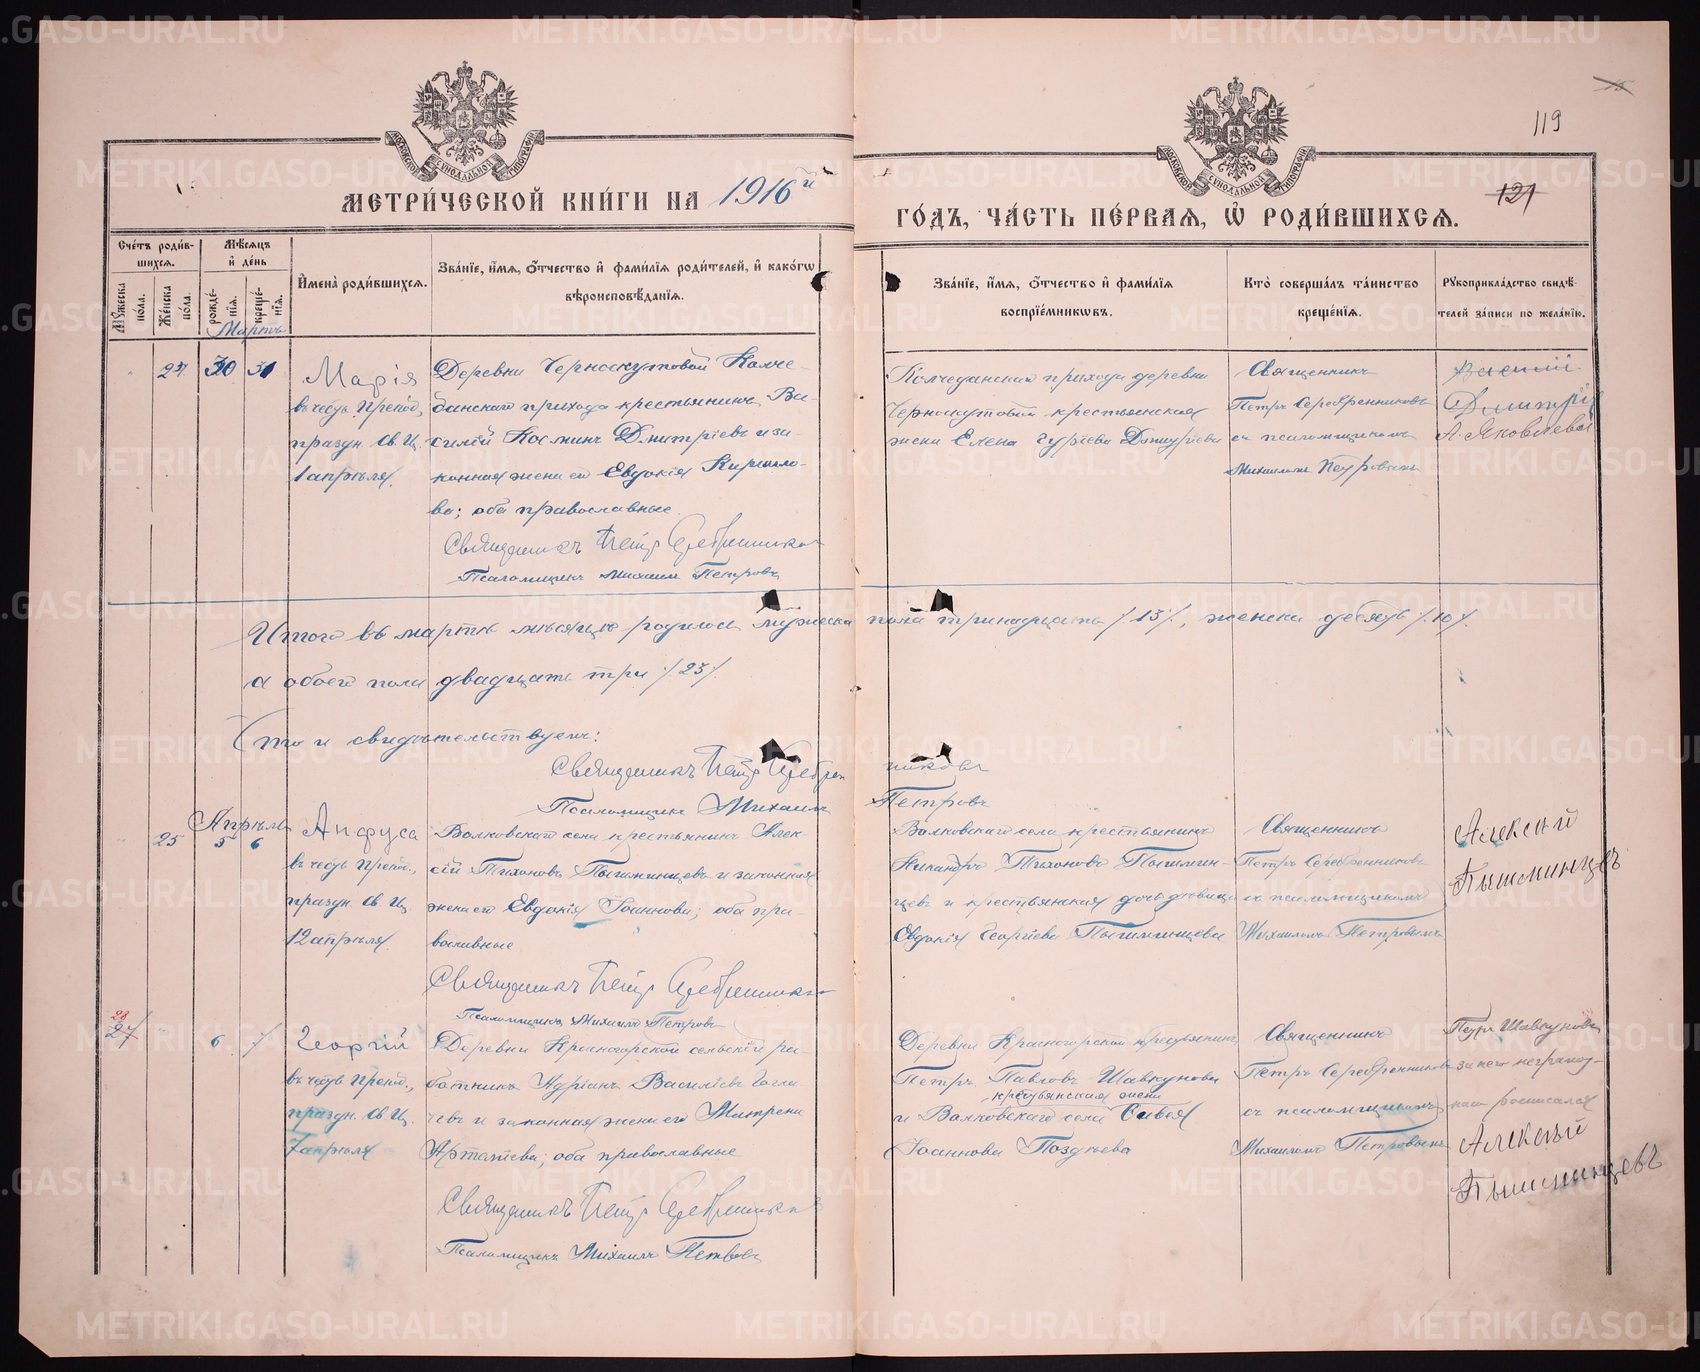 119
121
МЕТРИ́ЧЕСКОЙ КНИ́ГИ НА 1916й ГО́ДЪ, ЧА́СТЬ ПЕ́РВАЯ, Ѡ҆ РОДИ́ВШИХСЯ.
Сче́тъ роди́в-
шихся.
Мꙋ́жеска по́ла.
Же́нска по́ла.
Мѣ́сяцъ
и҆ де́нь
рожде́-
нїя.
креще́-
нїя.
И҆мена̀ роди́вшихся.
Зва́нїе, и҆́мя, ѻ҆́тчество и҆ фами́лїя роди́телей, и҆ како́гѡ
вѣроисповѣ́данїя.
Зва́нїе, и҆́мя, ѻ҆́тчество и҆ фами́лїя
воспрїе́мникѡвъ.
Кто̀ соверша́лъ та́инство
креще́нїя.
Рꙋкоприкла́дство свидѣ́-
телей за́писи по жела́нїю.
Мартъ
30 31
Марія
въ честь Препод.,
праздн. Св. Ц.
1 апрѣля.
Деревни Черноскутовой Колче-
данскаго прихода крестьянинъ Ва-
силій Косминъ Дмитріевъ и за-
конная жена его Евдокія Кирилло-
ва; оба православные.
Священникъ Петр Серебренников
Псаломщикъ Михаилъ Петровъ
Колчеданскаго прихода деревни
Черноскутовой крестьянская
жена Елена Гурьева Дмитріева
Священникъ
Петръ Серебренниковъ
съ псаломщикомъ
Михаиломъ Петровымъ
Василій
Дмитрій
А. Яковлева
Итого въ мартѣ мѣсяцѣ родилось мужеска пола тринадцать /13/, женска десять /10/,
а обоего пола двадцать три /23/.
Что и свидѣтельствуемъ:
Священникъ Петр Серебренниковъ
Псаломщикъ Михаилъ Петровъ
25
Апрѣль
5 6
Анфуса
въ честь Препод.,
праздн. Св. Ц.
12 апрѣля.
Волковскаго села крестьянинъ Алек-
сѣй Тихоновъ Пышминцевъ и законная
жена его Евдокія Іоаннова; оба пра-
вославные
Священникъ Петр Серебренников
Псаломщикъ Михаилъ Петровъ
Волковскаго села крестьянинъ
Никандръ Тихоновъ Пышмин-
цевъ и крестьянская дочь дѣвица
Евдокія Георгіева Пышминцева
Священникъ
Петръ Серебренниковъ
съ псаломщикомъ
Михаиломъ Петровымъ
Алексѣй
Пышминцевъ
28
27
6 7
Георгій
въ честь Препод.,
праздн. Св. Ц.
7 апрѣля
Деревни Красногорской сельскій ра-
ботникъ Адріанъ Василіевъ
и законная жена его Матрена
оба православные
Священникъ Петр Серебренников
Псаломщикъ Михаилъ Петровъ
Деревни Красногорской крестьянинъ
Петръ Павловъ Шавкуновъ
крестьянская жена
и Волковскаго села
Іоаннова Позднѣева
Священникъ
Петръ Серебренниковъ
съ псаломщикомъ
Михаиломъ Петровымъ
Петръ Шавкуновъ
за него неграмот-
наго росписался
Алексѣй
Пышминцевъ
METRIKI.GASO-URAL.RU